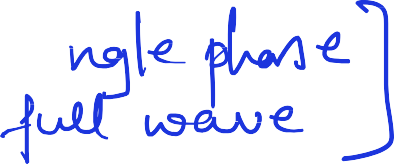 ngle phase
full wave